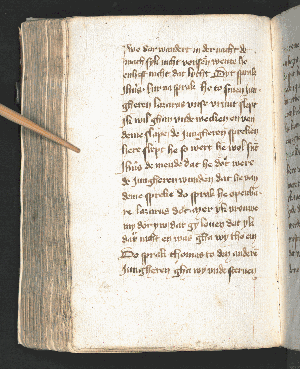 we dar wandert in der nacht de
mach sik nicht wente he
en heft nicht dat lycht Dyt sprak
ihesus dar na sprak he to synen jun
gheren lazarus unse vrunt slept
ik wil ghan unde wecken en van
deme slape de jungheren spreken
here slept he so wert he wol sunt
ihesus de mende dat he dot were
de jungheren wanden dat he van
deme sprake do sprak he openba
re lazarus dot yk vrowe
my dor yw dat gy louen dat yk
dar nicht en was gha wy tho em
Do sprak thomas to den andern
jungheren gha wy unde steruen